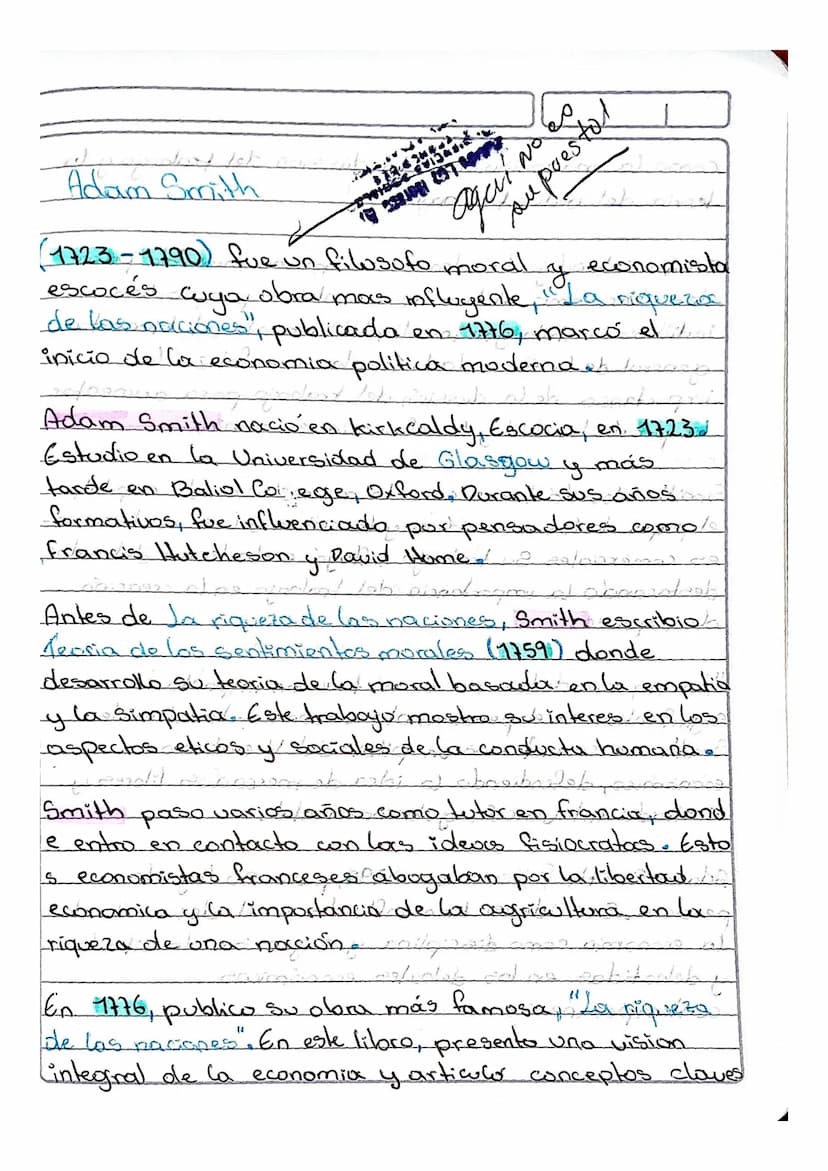 aquí no es
supuesto!
Adam Smith
(1723-1790) fue un filosofo moral y economista
escocés cuya obra mas influyente, "La riqueza
de las naciones", publicada en 1776, marcó el
inicio de la economia politica moderna.
Adam Smith nacio en Kirkcaldy, Escocia, en 1723.
Estudio en la Universidad de Glasgow y más
tarde en Baliol Col ege, Oxford. Durante sus años
formativos, fue influenciado por pensadores como
Francis Hutcheson y David Hume.
Antes de La riqueza de las naciones, Smith escribio
Teoria de los sentimientos morales (1759) donde
desarrollo su teoria de la moral basada en la empatia
y la simpatia. Este trabajo mostro su interes en los
aspectos eticos y sociales de la conducta humana.
Smith paso varios años como tutor en francia, dond
e entro en contacto con las ideas fisiocratas. Esto
s economistas franceses abogaban por la libertad
economica y la importancia de la agricultura en la
riqueza de una nación.
En 1776, publico su obra más famosa, "La riqueza
de las naciones". En este libro, presento una vision
integral de la economia y articulo conceptos claves